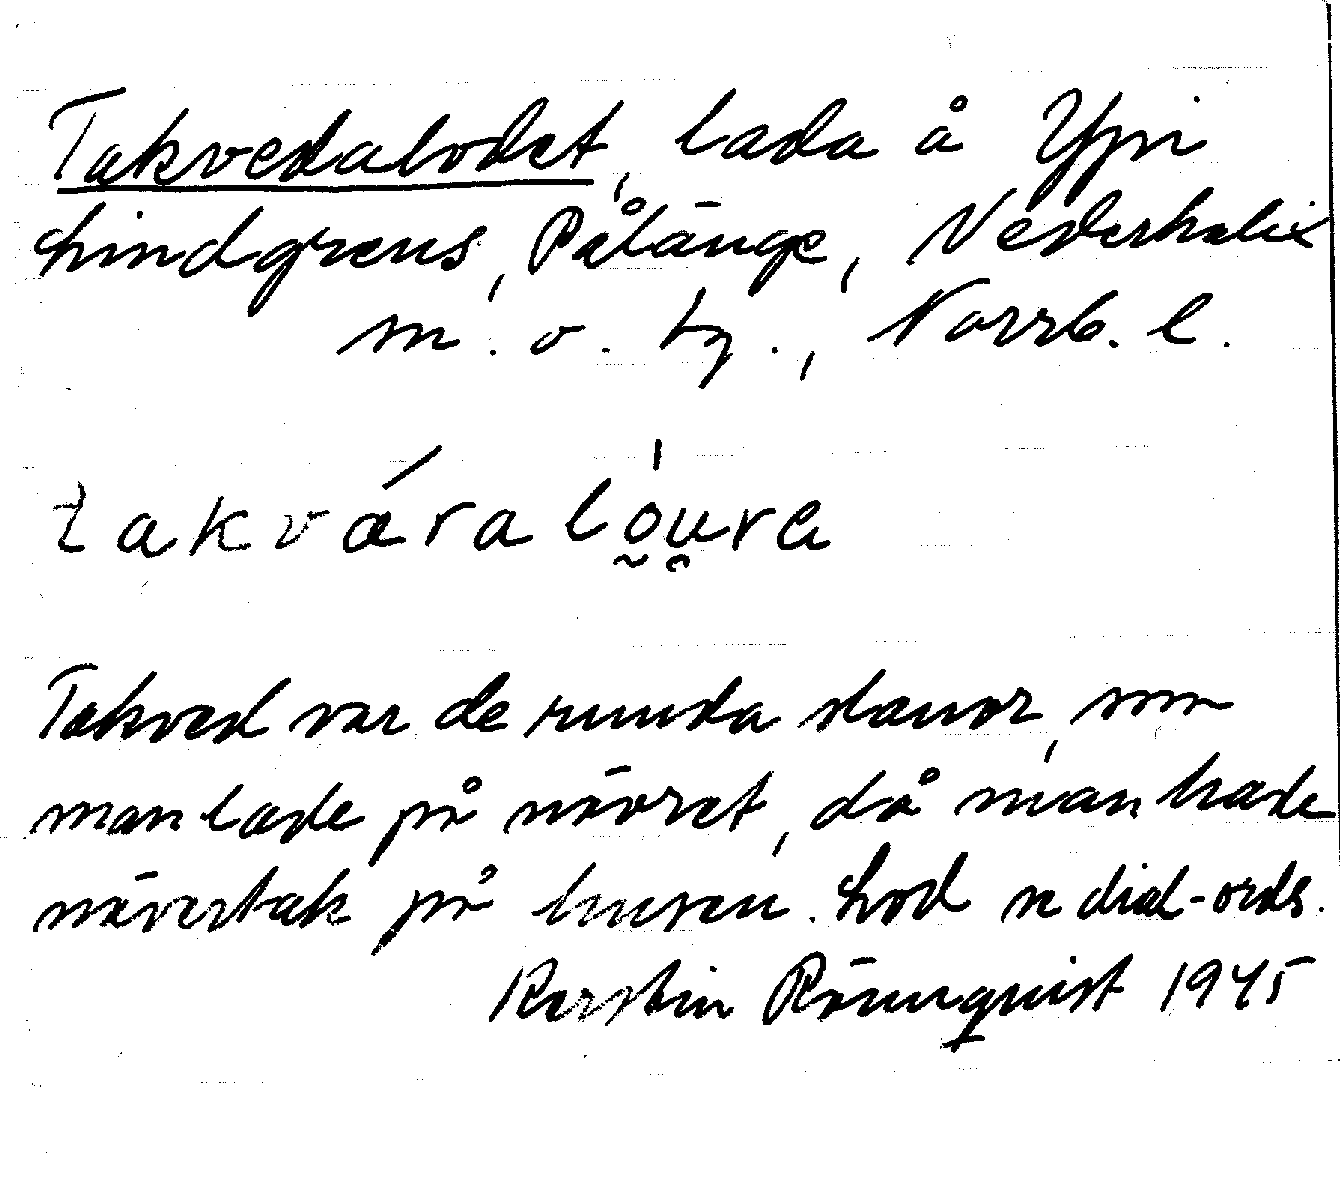 Takvedalodet, lada å Ypn
Lindgrens, Pålänge, Nederkalix
m. o. tg., Norrb. l.
takváralo̰u̯ra
Takved var de runda slanor, som
man lade på nävret, då man hade
nävertak på husen. Lod se dial-ords.
Kerstin Rönnquist 1945